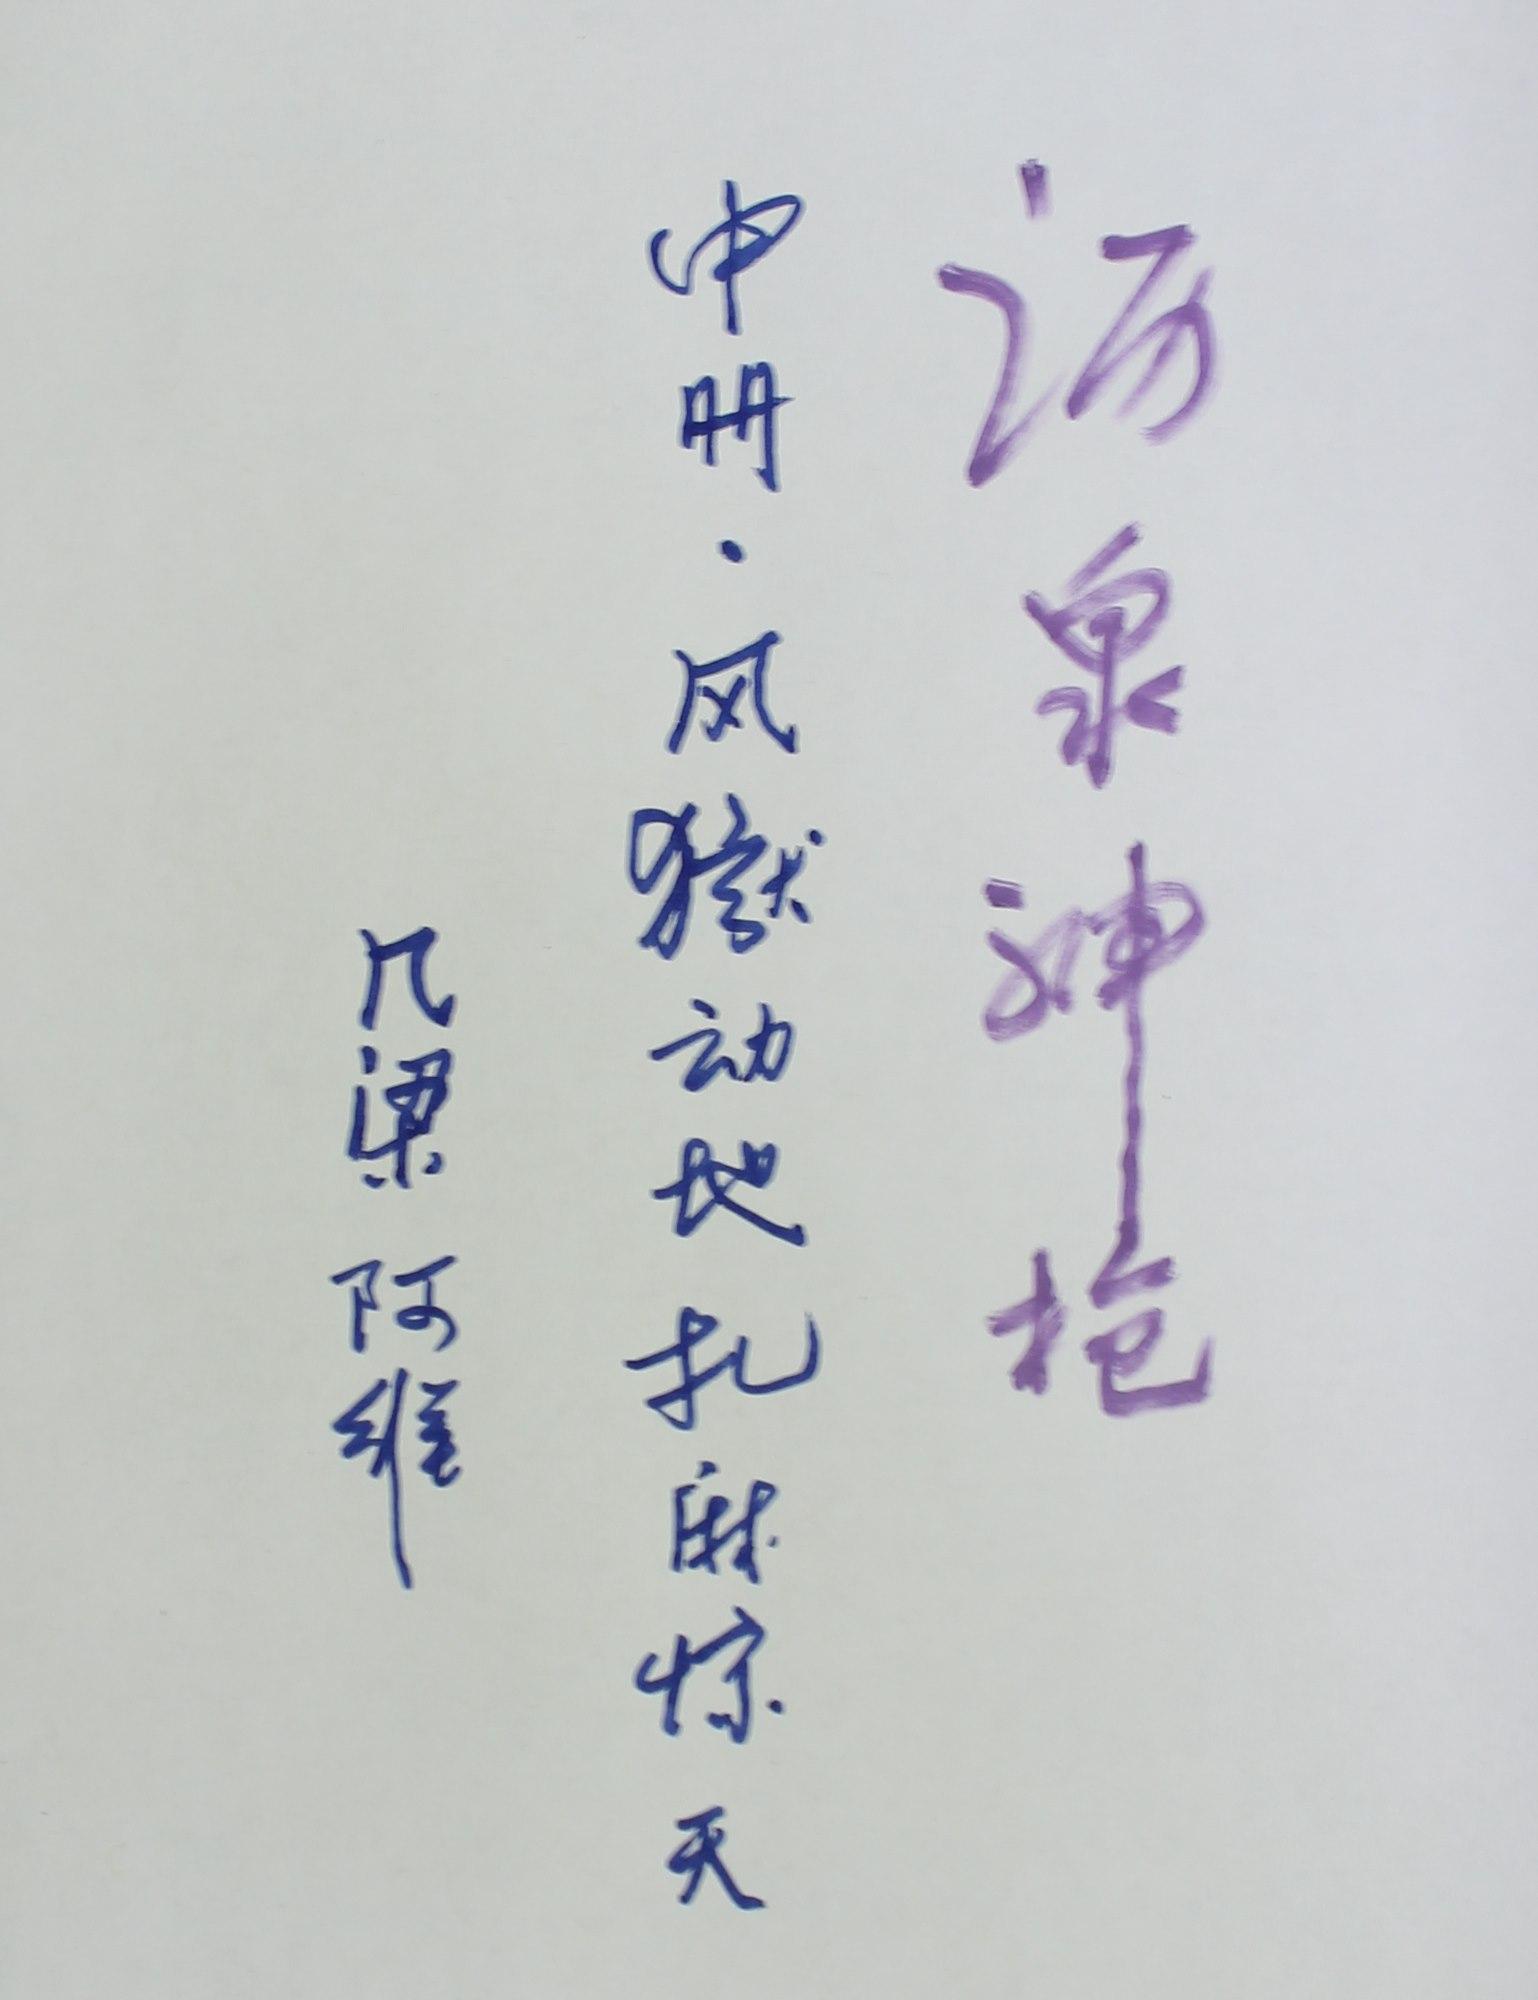 沥泉神枪
中册·风狱动地扎麻惊天
凡梁 阿维